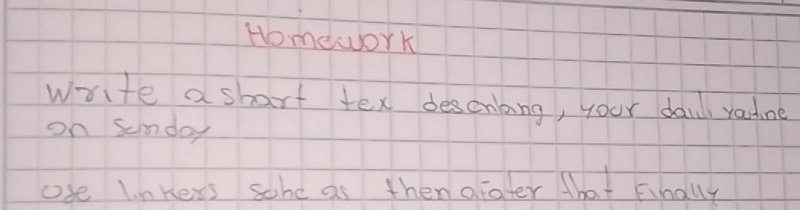 Homework
Write a short tex descnbang, your daili ratine
on sunday
ose linkers suhc as then afater that Finally